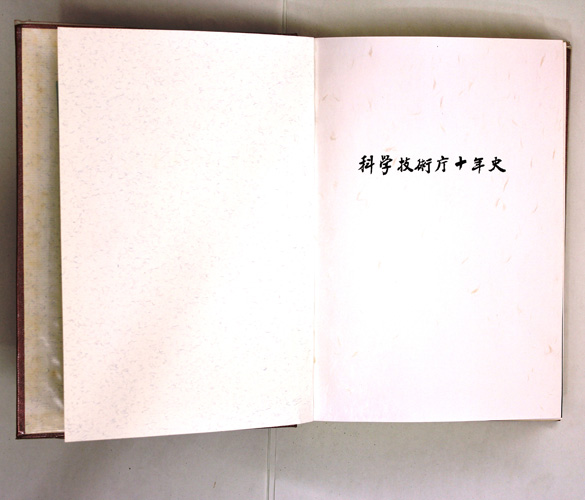 科学技術庁十年史